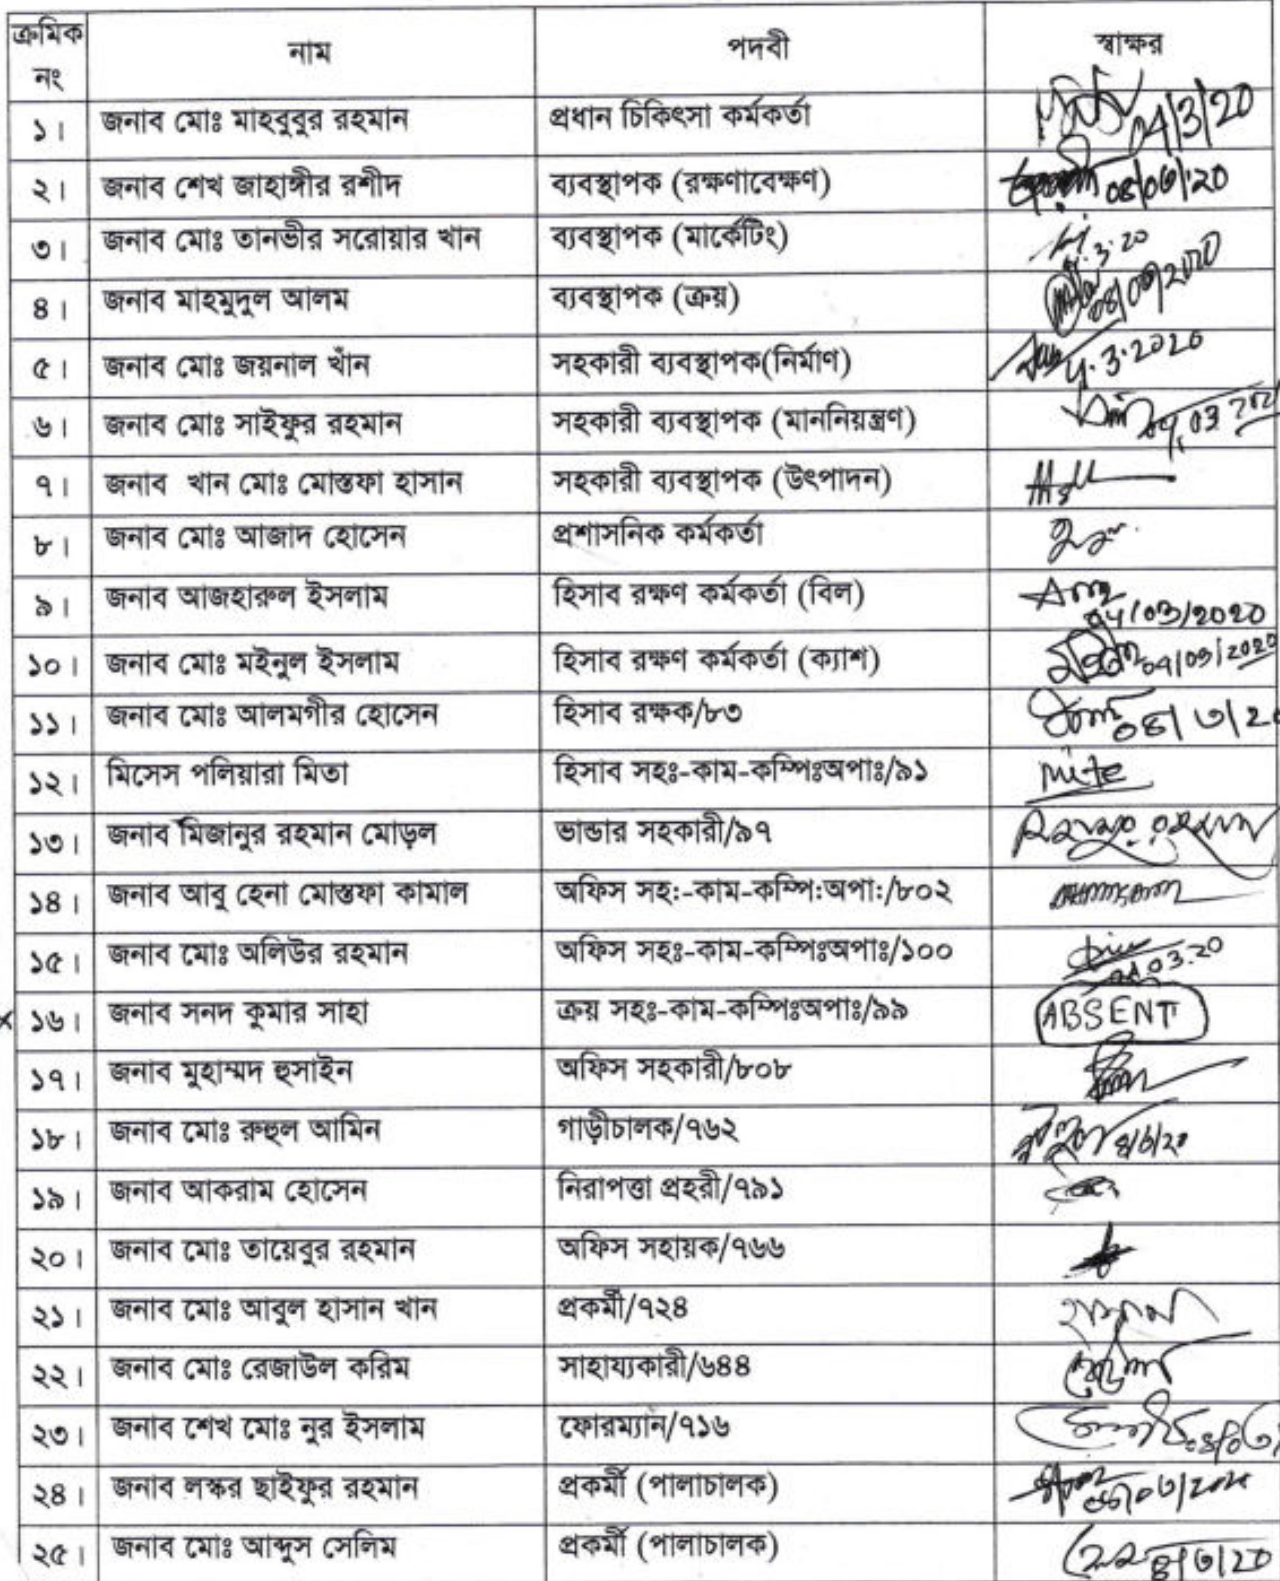 ক্রমিক নং নাম পদবী স্বাক্ষর
১। জনাব মোঃ মাহবুবুর রহমান প্রধান চিকিৎসা কর্মকর্তা 04/3/20
২। জনাব শেখ জাহাঙ্গীর রশীদ ব্যবস্থাপক (রক্ষণাবেক্ষণ) ০৪/০৩/'২০
৩। জনাব মোঃ তানভীর সরোয়ার খান ব্যবস্থাপক (মার্কেটিং)
৪। জনাব মাহমুদুল আলম ব্যবস্থাপক (ক্রয়)
৫। জনাব মোঃ জয়নাল খাঁন সহকারী ব্যবস্থাপক(নির্মাণ) 4.3.2020
৬। জনাব মোঃ সাইফুর রহমান সহকারী ব্যবস্থাপক (মাননিয়ন্ত্রণ)
৭। জনাব খান মোঃ মোস্তফা হাসান সহকারী ব্যবস্থাপক (উৎপাদন)
৮। জনাব মোঃ আজাদ হোসেন প্রশাসনিক কর্মকর্তা
৯। জনাব আজহারুল ইসলাম হিসাব রক্ষণ কর্মকর্তা (বিল) 04/03/2020
১০। জনাব মোঃ মইনুল ইসলাম হিসাব রক্ষণ কর্মকর্তা (ক্যাশ) 04/03/2020
১১। জনাব মোঃ আলমগীর হোসেন হিসাব রক্ষক/৮৩ ০৪/৩/২০
১২। মিসেস পলিয়ারা মিতা হিসাব সহঃ-কাম-কম্পিঃঅপাঃ/৯১
১৩। জনাব মিজানুর রহমান মোড়ল ভান্ডার সহকারী/৯৭
১৪। জনাব আবু হেনা মোস্তফা কামাল অফিস সহ:-কাম-কম্পি:অপা:/৮০২
১৫। জনাব মোঃ অলিউর রহমান অফিস সহঃ-কাম-কম্পিঃঅপাঃ/১০০ 04.03.20
১৬। জনাব সনদ কুমার সাহা ক্রয় সহঃ-কাম-কম্পিঃঅপাঃ/৯৯ ABSENT
১৭। জনাব মুহাম্মদ হুসাইন অফিস সহকারী/৮০৮
১৮। জনাব মোঃ রুহুল আমিন গাড়ীচালক/৭৬২ ৪/৩/২০
১৯। জনাব আকরাম হোসেন নিরাপত্তা প্রহরী/৭৯১
২০। জনাব মোঃ তায়েবুর রহমান অফিস সহায়ক/৭৬৬
২১। জনাব মোঃ আবুল হাসান খান প্রকর্মী/৭২৪
২২। জনাব মোঃ রেজাউল করিম সাহায্যকারী/৬৪৪
২৩। জনাব শেখ মোঃ নুর ইসলাম ফোরম্যান/৭১৬
২৪। জনাব লস্কর ছাইফুর রহমান প্রকর্মী (পালাচালক)
২৫। জনাব মোঃ আব্দুস সেলিম প্রকর্মী (পালাচালক) ৪/৩/২০